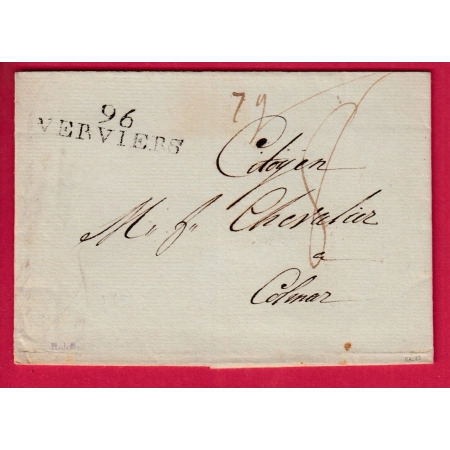 96
VERVIERS
79
8
Citoyen
Chevalier
a
Colmar